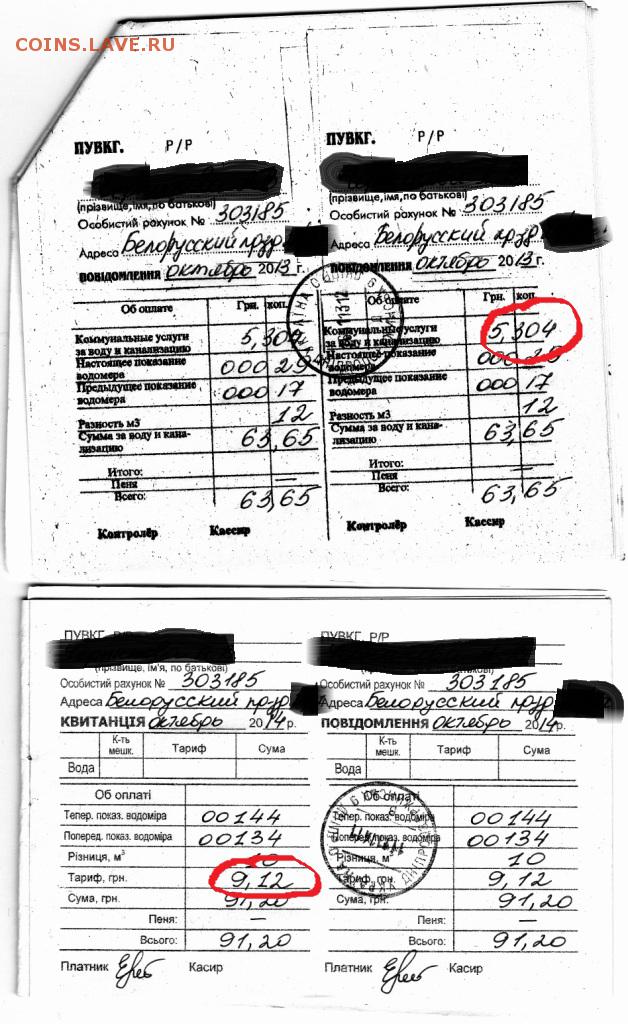 COINS.LAVE.RU
ПУВКГ. Р/Р
(прізвище, імя, по батькові)
Особистий рахунок № 303185
Адреса Белорусский пр
ПОВІДОМЛЕННЯ октябрь 2013 г.
Об оплате Грн. коп.
Коммунальные услуги за воду и канализацию 5,304
Настоящее показание водомера 00029
Предыдущее показание водомера 00017
Разность м3 12
Сумма за воду и канализацию 63,65
Итого: —
Пеня
Всего: 63,65
Контролёр Кассир
ПУВКГ. Р/Р
(прізвище, імя, по батькові)
Особистий рахунок № 303185
Адреса Белорусский пр
ПОВІДОМЛЕННЯ октябрь 2013 г.
Об оплате Грн. коп.
Коммунальные услуги за воду и канализацию 5,304
Настоящее показание водомера 00029
Предыдущее показание водомера 00017
Разность м3 12
Сумма за воду и канализацию 63,65
Итого: —
Пеня
Всего: 63,65
Контролёр Кассир
ПУВКГ.
(прізвище, ім'я, по батькові)
Особистий рахунок № 303185
Адреса Белорусский
КВИТАНЦІЯ октябрь 2014 р.
К-ть мешк. Тариф Сума
Вода
Об оплаті
Тепер. показ. водоміра 00144
Поперед. показ. водоміра 00134
Різниця, м³ 10
Тариф, грн. 9,12
Сума, грн. 91,20
Пеня: —
Всього: 91,20
Платник Касир
ПУВКГ. Р/Р
Особистий рахунок № 303185
Адреса Белорусский
ПОВІДОМЛЕННЯ октябрь 2014 р.
К-ть мешк. Тариф Сума
Вода
Об оплаті
Тепер. показ. водоміра 00144
Поперед. показ. водоміра 00134
Різниця, м³ 10
Тариф, грн. 9,12
Сума, грн. 91,20
Пеня: —
Всього: 91,20
Платник Касир